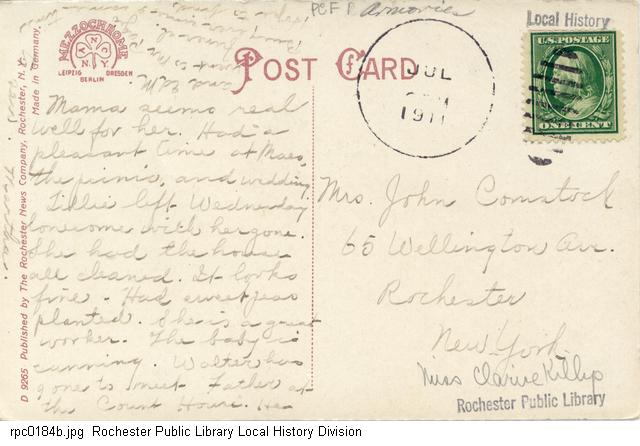 PCF R Armories
Local History
MEZZOCHROME
ANCNY
LEIPZIG DRESDEN
BERLIN
POST CARD
JUL
1911
U.S. POSTAGE
ONE CENT
D 9265 Published by The Rochester News Company, Rochester, N.Y. Made in Germany.
Mama seems real
well for her. Had a
pleasant time at Maes,
the picnic, and wedding.
Lillie left Wednesday
lonesome with her gone.
She had the house
all cleaned. It looks
fine. Had sweet peas
planted. She is a great
worker. The baby is
cunning. Walter has
gone to meet Father at
the Court House. He
Mrs. John Comstock
65 Wellington Ave.
Rochester
New York
Miss Clarice Killip
Rochester Public Library
rpc0184b.jpg Rochester Public Library Local History Division